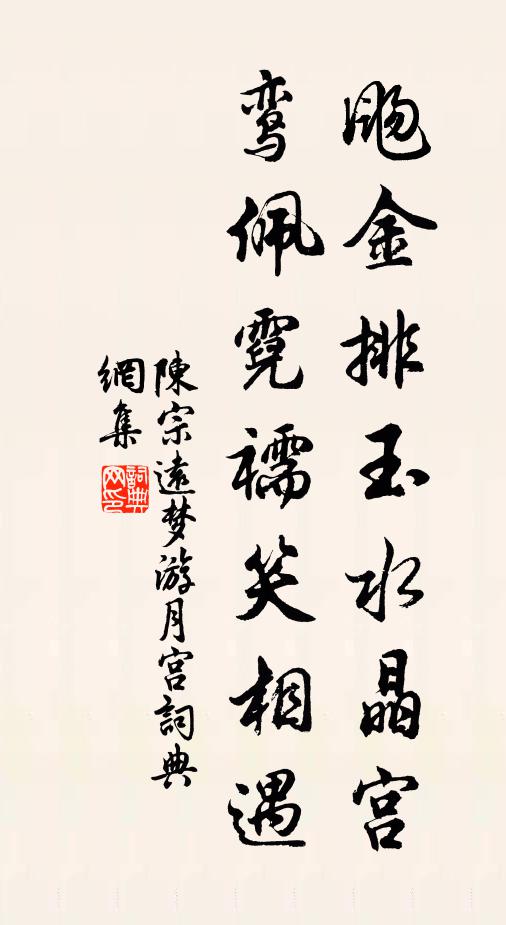 飏金排玉水晶宫
鸾佩霓襦笑相遇
陳宗遠梦游月宫詞典
網集
詞典网印